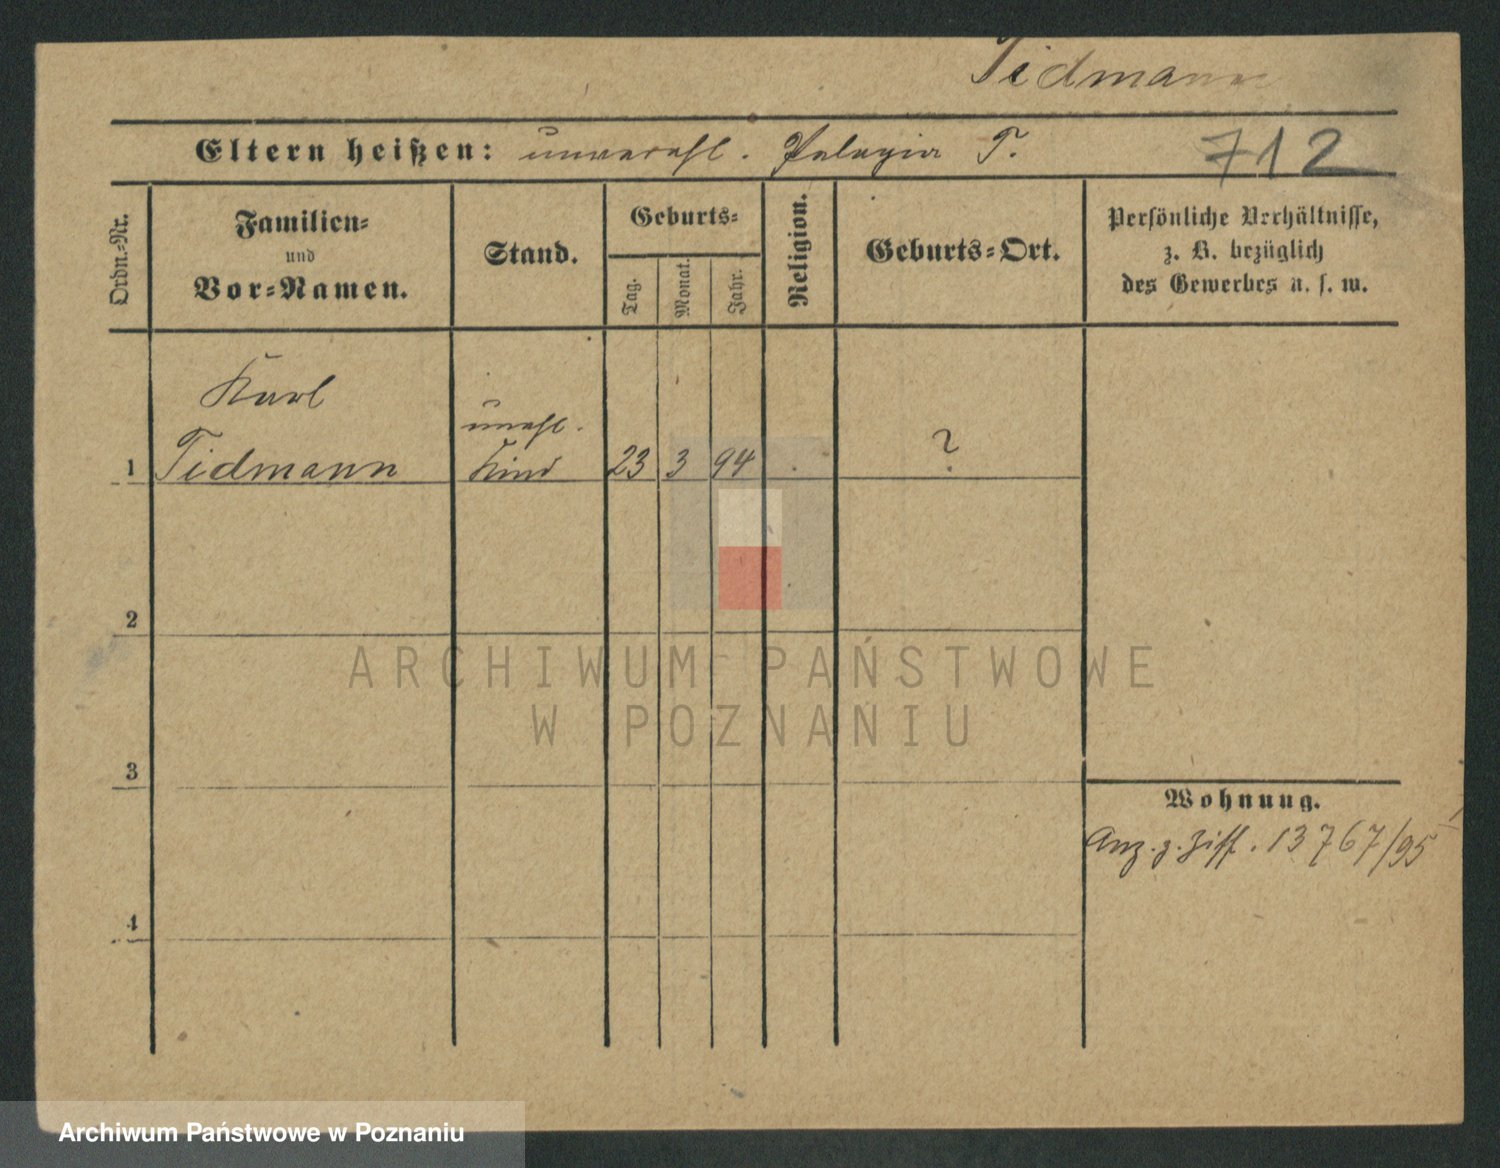 Tidmann
Eltern heißen: unverehl. Pelagia T.
712
Ordn.-Nr.
Familien-
und
Vor-Namen.
Stand.
Geburts-
Tag.
Monat.
Jahr.
Religion.
Geburts-Ort.
Persönliche Verhältnisse,
z. B. bezüglich
des Gewerbes u. s. w.
Karl
unehl.
1 Tidmann Kind 23 3 94 ?
2
3
4
Wohnung.
Anz. z. Ziff. 13767/95
ARCHIWUM PAŃSTWOWE
W POZNANIU
Archiwum Państwowe w Poznaniu